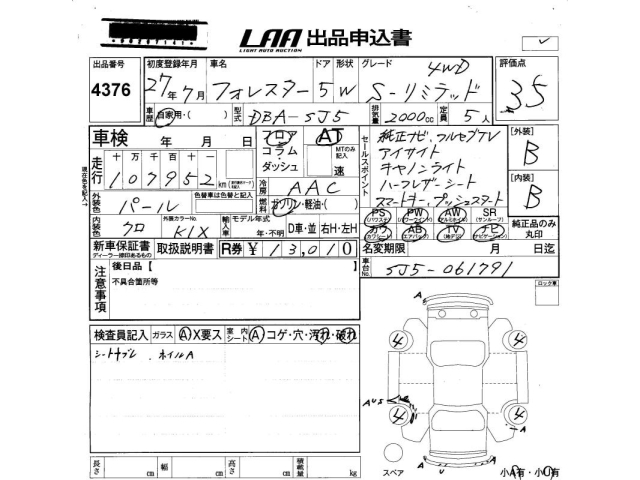 LAA 出品申込書
LIGHT AUTO AUCTION
出品番号 初度登録年月 車名 ドア 形状 グレード 評価点
4376 27年7月 フォレスター 5 W 4WD S-リミテッド 3.5
車歴 自家用・( ) 型式 DBA-SJ5 排気量 2000cc 定員 5人
車検 年 月 日 フロア コラム ダッシュ AT MTのみ記入 速
セールスポイント
純正ナビ、フルセグTV
アイサイト
キャノンライト
ハーフレザーシート
スマートキー、プッシュスタート
[外装] B
[内装] B
走行 十 万 千 百 十
107952 km
冷房 AAC
外装色 パール 色替車は色替と記入 燃料 ガソリン・軽油・( )
内装色 クロ 外装カラーNo. K1X 輸入車 モデル年式 年・不明 D車・並 右H・左H
PS (パワステ) PW (パワーウインド) AW (アルミホイル) SR (サンルーフ) 純正品のみ丸印
カワ AB (エアバック) TV ナビ (ナビゲーション)
新車保証書 ディーラー捺印あるもの 取扱説明書 R券 ¥13,010 名変期限 月 日迄
車台No. SJ5-061791
注意事項 後日品 [ ]
不具合箇所等
ロック車
検査員記入 ガラス A X要ス 室内シート A コゲ・穴・汚れ・破れ
シートヤブレ、ホイルA
A
4 4
AUS
4 4
A
スペア
A U
小A有・小U有
長さ cm 幅 cm 高さ cm 積載量 kg
現在色を記入→